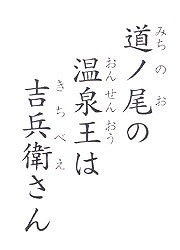 道ノ尾の
温泉王は
吉兵衛さん
みちのお
おんせんおう
きちべえ